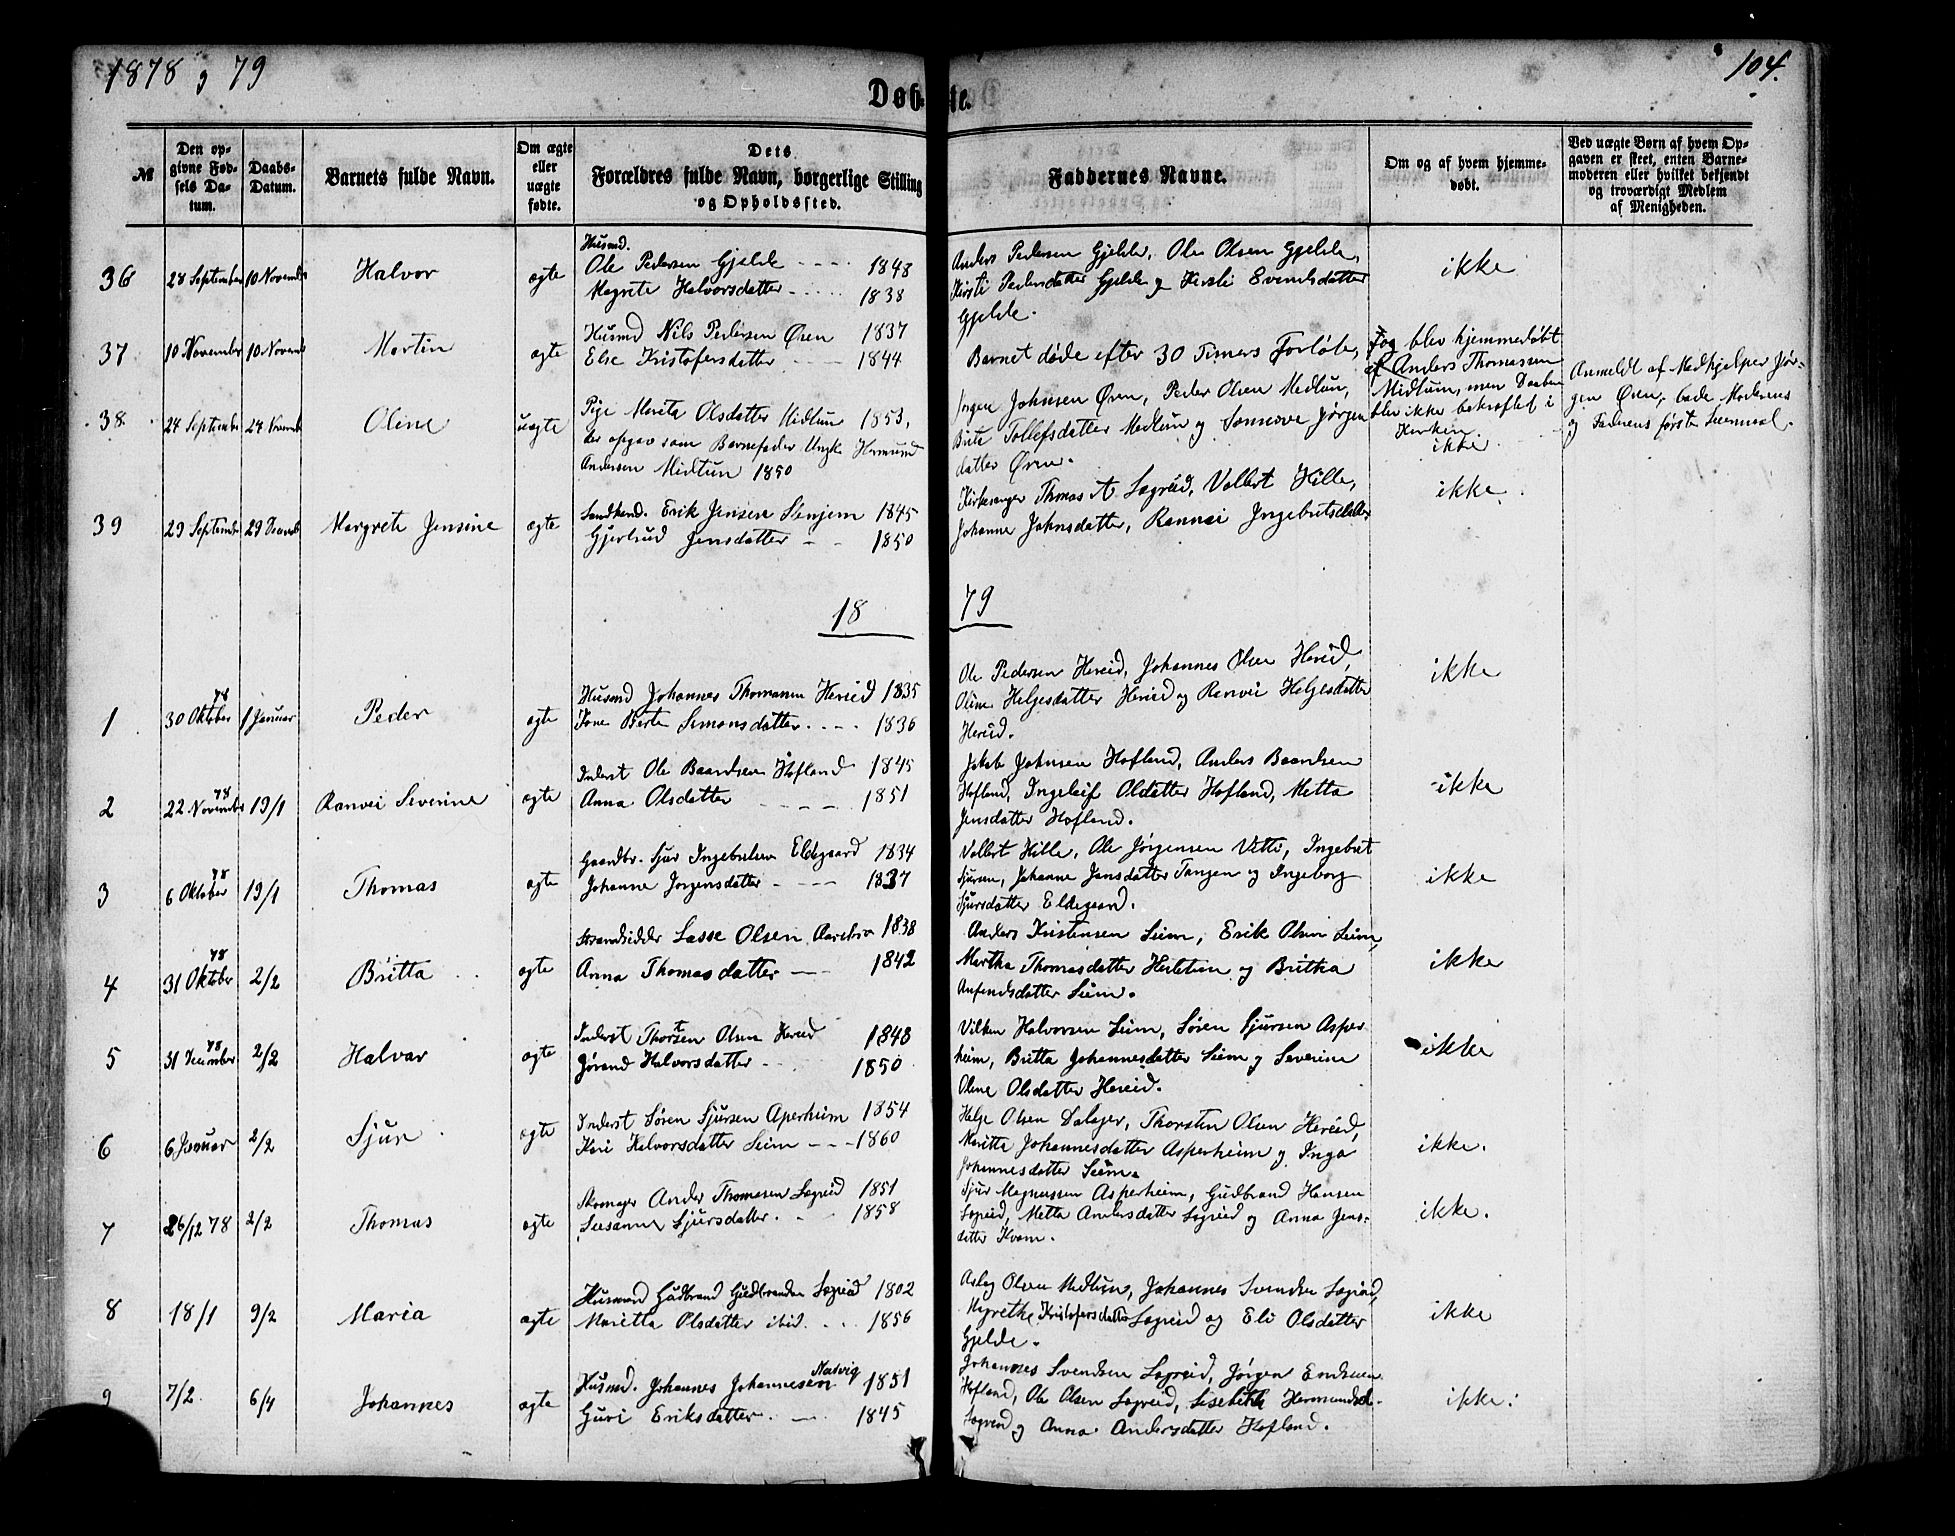 1878 & 79
104.
Døbte.
№
Den opgivne Fødsels Datum.
Daabs-Datum.
Barnets fulde Navn.
Om ægte eller uægte fødte.
Dets Forældres fulde Navn, borgerlige Stilling og Opholdssted.
Faddernes Navne.
Om og af hvem hjemmedøbt.
Ved uægte Børn af hvem Opgaven er skeet, enten Barnemoderen eller hvilket bekjendt og troværdigt Medlem af Menigheden.
36
28 September
10 November
Halvor
ægte
Husmd.
Ole Pedersen Gjelde 1848
Magrete Halvorsdatter 1838
Anders Pedersen Gjelde, Ole Olsen Gjelde,
Kirsti Pedersdatter Gjelde og Kirsti Svendsdatter
Gjelde.
ikke
37
10 November
10 Novemb
Martin
ægte
Husmd Nils Pedersen Øren 1837
Else Kristofersdatter 1844
Barnet døde efter 30 Timers Forløb,
og blev hjemmedøbt
af Anders Thomassen
Midtun, men Daaben
blev ikke bekræftet i
Kirken
38
24 Septembr
24 Novemb
Oline
uægte
Pige Marita Olsdatter Midtun 1853,
der opgav som Barnefader Ungk. Hermund
Andersen Midtun 1850
Jørgen Johnsen Øren, Peder Olsen Medtun,
Brite Tollefsdatter Medtun og Sønnove Jørgens
datter Øren.
ikke
Anmeldt af Medhjelper Jør-
gen Øren, bade Moderens
og Faderens første Leiermaal.
39
29 Septembr
29 Decemb
Margrete Jensine
ægte
Landhand. Erik Jensen Stenjem 1845
Gjertrud Jensdatter 1850
Kirkesanger Thomas A Sægreid, Vollert Hille,
Johanne Johnsdatter, Rannei Ingebretsdatter
ikke
1879
1
30 Oktober 78
1 Januar
Peder
ægte
Husmd Johannes Thomassen Hereid 1835
Kone Berte Simonsdatter 1836
Ole Pedersen Hereid, Johannes Olsen Hereid,
Oline Helgesdatter Hereid og Ranvei Helgesdatter
Hereid.
ikke
2
22 November 78
19/1
Ranvei Severine
ægte
Inderst Ole Baardsen Hofland 1845
Anna Olsdatter 1851
Jakob Johnsen Hofland, Anders Baardsen
Hofland, Ingeleif Olsdatter Hofland, Metta
Jensdatter Hofland.
ikke
3
6 Oktober 78
19/1
Thomas
ægte
Gaardbr. Sjur Ingebretsen Eldegaard 1834
Johanne Jørgensdatter 1837
Vollert Hille, Ole Jørgensen Vetti, Ingebret
Sjursen, Johanne Jensdatter Tangen og Ingeborg
Sjursdatter Eldegaard.
ikke
4
31 Oktober 78
2/2
Britta
ægte
Strandsidder Lasse Olsen 1838
Anna Thomasdatter 1842
Anders Kristensen Seim, Erik Olsen Seim,
Martha Thomasdatter og Britha
Anfindsdatter Seim.
ikke
5
31 December 78
2/2
Halvar
ægte
Inderst Thorsten Olsen Hereid 1848
Jørand Halvorsdatter 1850
Vilken Halvorsen Seim, Søren Sjursen Asper-
heim, Britta Johannesdatter Seim og Severine
Oline Olsdatter Hereid.
ikke
6
6 Januar
2/2
Sjur
ægte
Inderst Søren Sjursen Asperheim 1854
Kari Halvorsdatter Seim 1860
Helge Olsen Dalager, Thorsten Olsen Hereid,
Maritte Johannesdatter Asperheim og Inga
Johannesdatter Seim.
ikke.
7
26/12 78
2/2
Thomas
ægte
Skomager Anders Thomasen Sægreid 1851
Susanne Sjursdatter 1858
Sjur Magnussen Asperheim, Gudbrand Hansen
Sægreid, Metta Andersdatter Sægreid og Anna Jens-
datter Kvam.
ikke.
8
18/1
9/2
Maria
ægte
Husmand Gudbrand Gudbrandsen Sægreid 1802
Maritta Olsdatter ibid. 1856
Aslag Olsen Medtun, Johannes Svendsen Sægreid,
Mgrethe Kristofersdatter Sægreid og Eli Olsdatter
Gjelde.
ikke
9
7/2
6/4
Johannes
ægte
Husmd. Johannes Johannesen Natvig 1851
Guri Eriksdatter 1845
Johannes Svendsen Sægreid, Jørgen Endresen
Hofland, Ole Olsen Sægreid, Lisebeth Hermundsd.
Sægreid og Anna Andersdatter Hofland.
ikke.